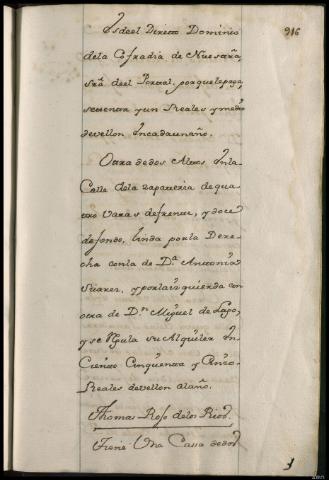 916
Es del Directo Dominio
dela Cofradia de Nuestra
Srã. deel Portal, porquele paga,
sesenta y un Reales y medio
de vellon En cada un año.
Otra de dos Altos En la
Calle dela Zapateria de qua
tro varas de frente, y doce
de fondo, linda por la Dere
cha con la de Dª Antonia
Suarez, y por la izquierda con
otra de Dn. Miguel de Lago,
y se regula su Alquiler En
Ciento Cinquenta y Cinco
Reales de vellon al año.
Thomas Roso delos Rios
Tiene Una Cassa de dos